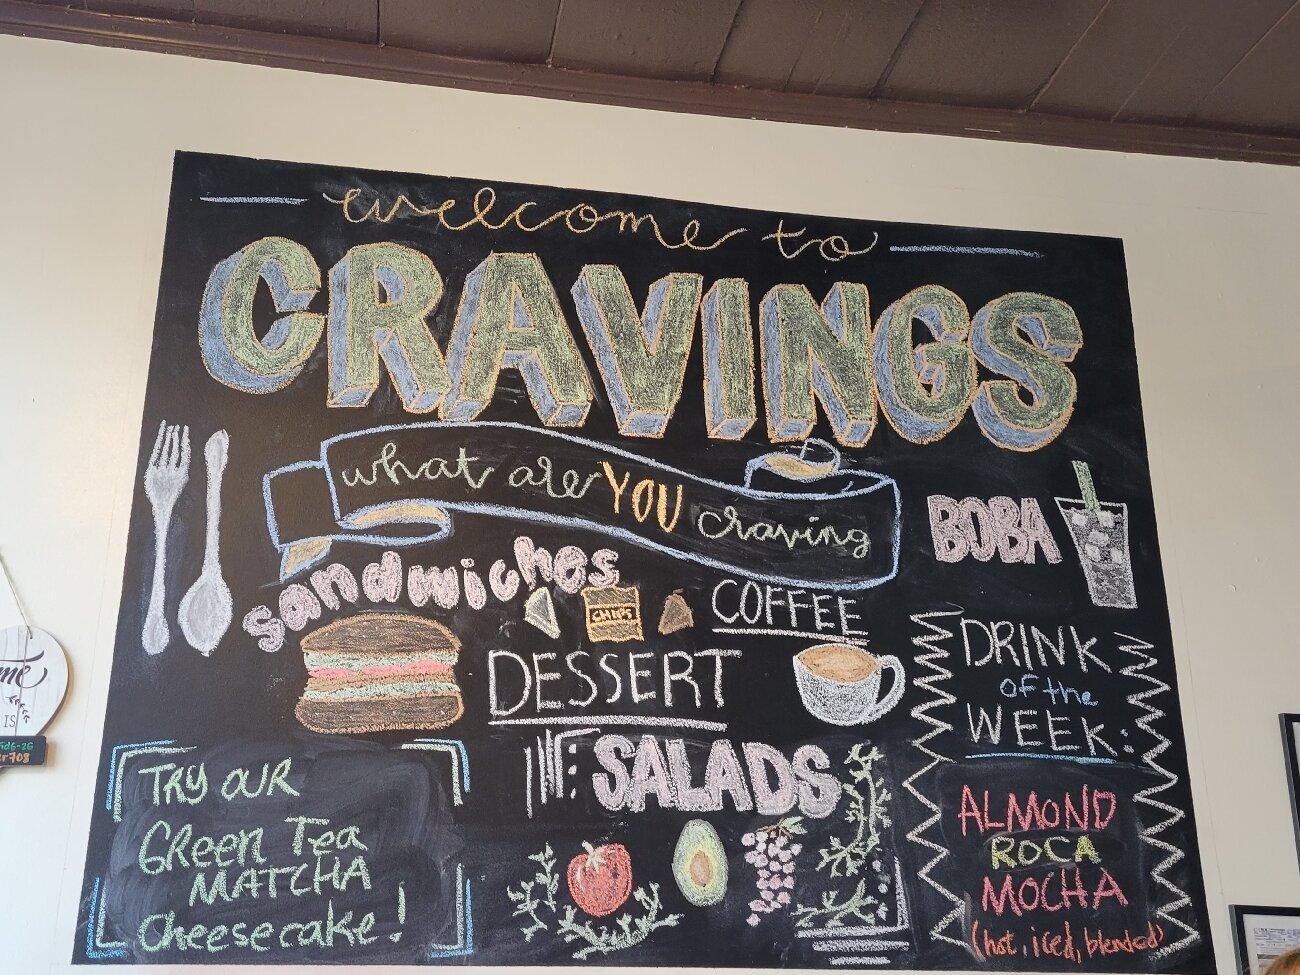 welcome to
CRAVINGS
what are YOU craving
BOBA
sandwiches
CHIPS
COFFEE
DESSERT
SALADS
DRINK
of the
WEEK:
ALMOND
ROCA
MOCHA
(hot, iced, blended)
TRY OUR
GReen Tea
MATCHA
Cheesecake!
IS